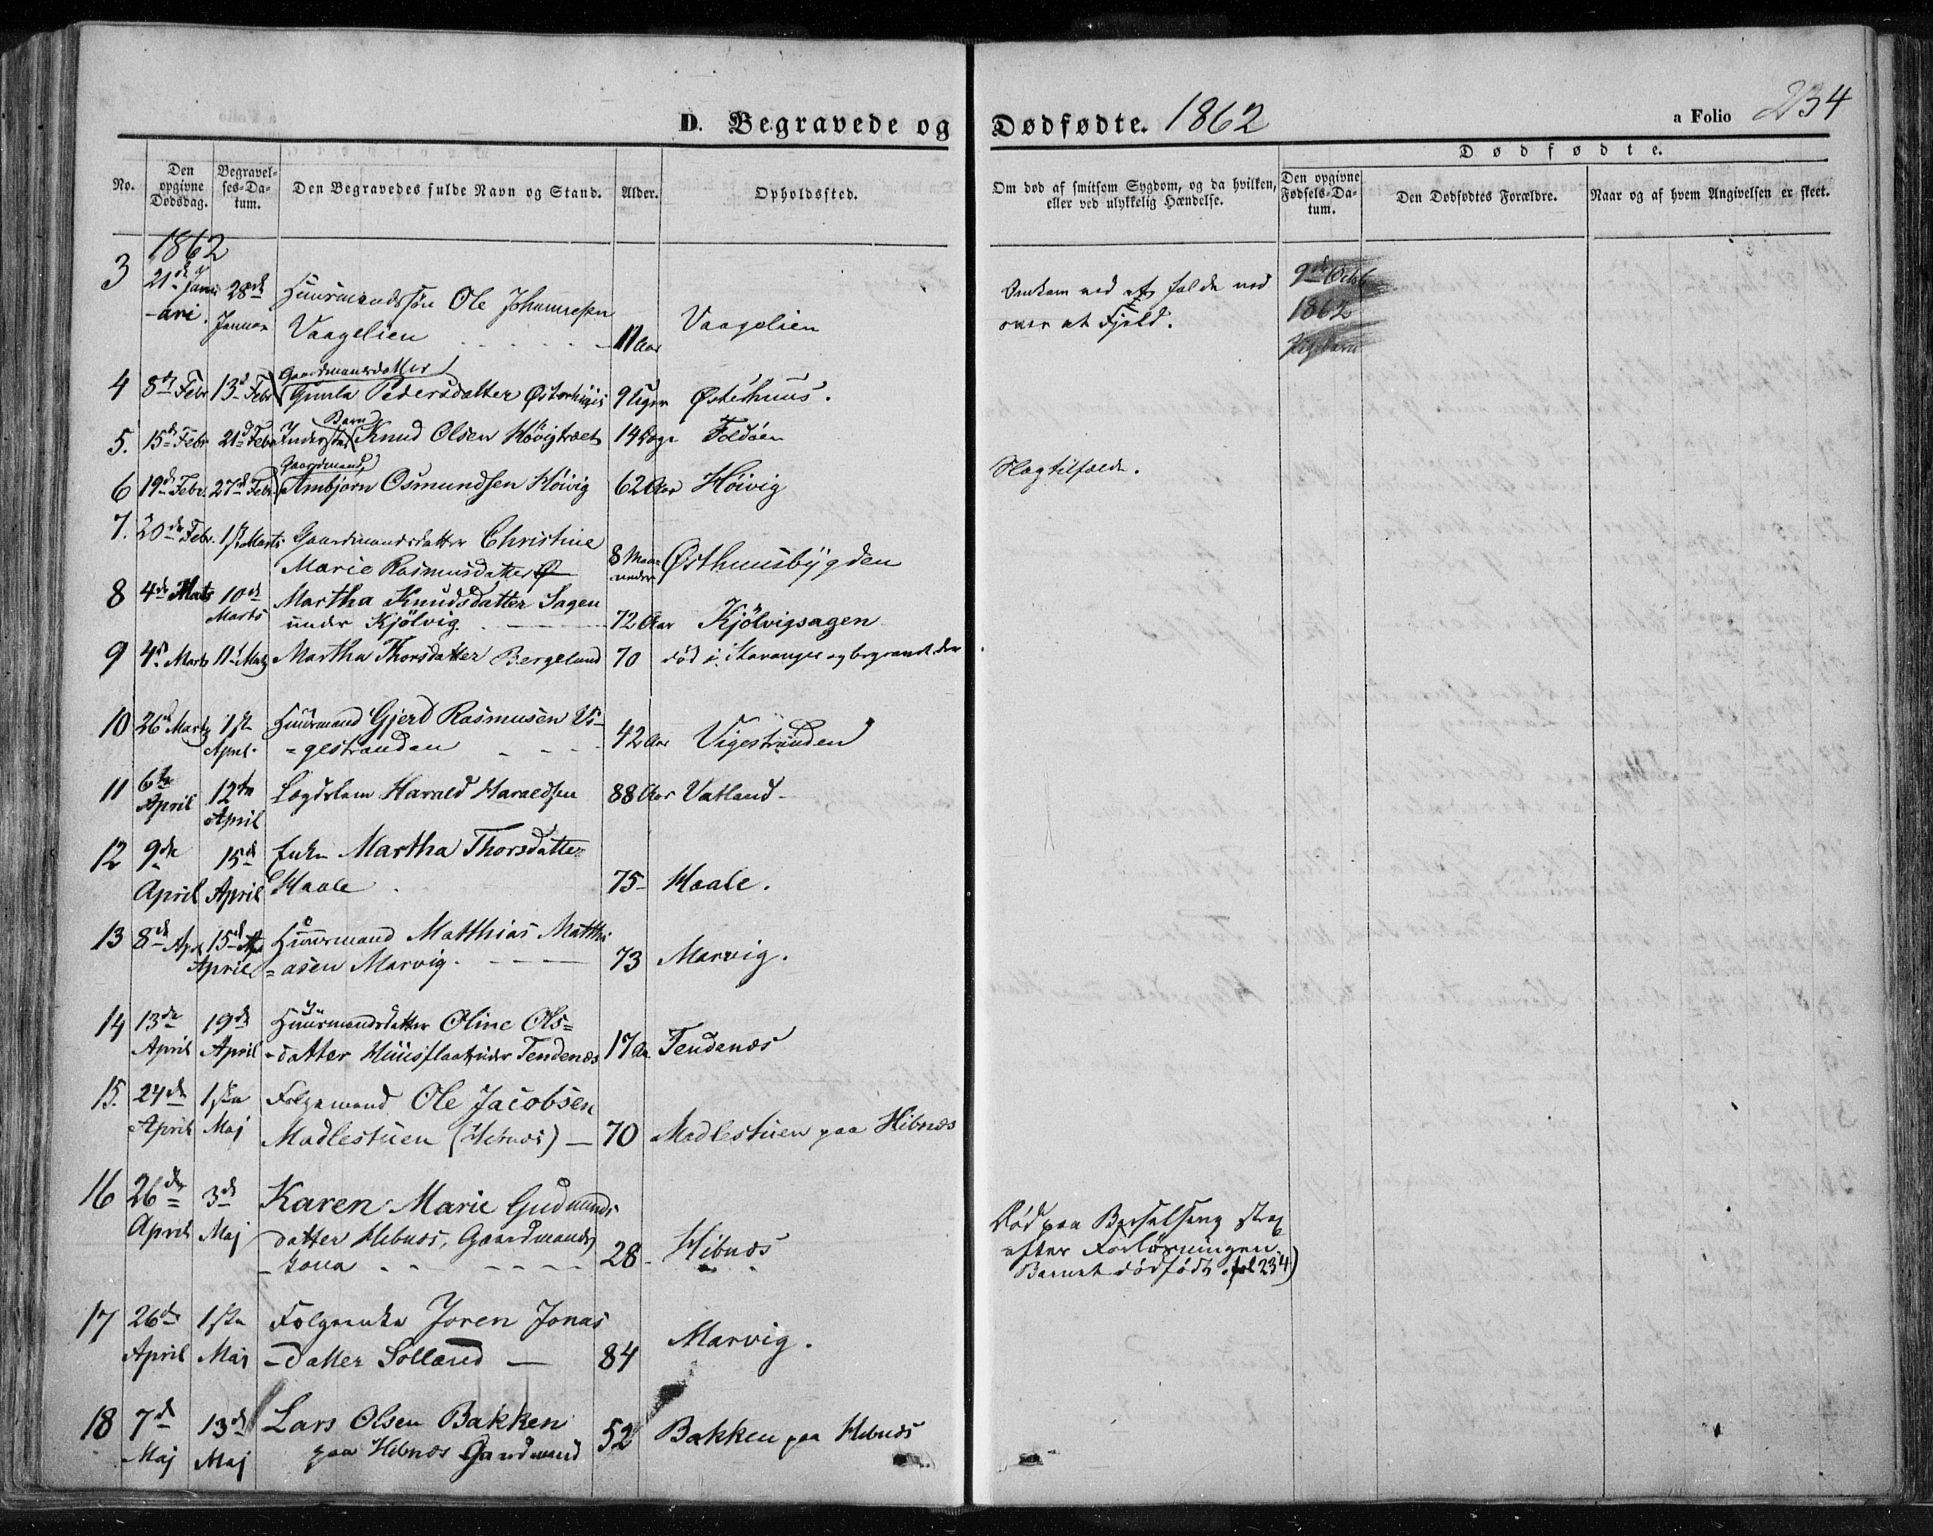 D. Begravede og Dødfødte. 1862
a Folio 234
No.
Den opgivne Dødsdag.
Begravelses-Datum.
Den Begravedes fulde Navn og Stand.
Alder.
Opholdssted.
Om død af smitsom Sygdom, og da hvilken, eller ved ulykkelig Hændelse.
Dødfødte.
Den opgivne Fødsels-Datum.
Den Dødfødtes Forældre.
Naar og af hvem Angivelsen er skeet.
1862
3 21de Janu 28de Huusmandssøn Ole Johannessen
-ari. Januar Vaagelien 11 Aar Vaagelien
Omkom ved at falde ned
over et Fjeld.
9de Octb
1862
Gaardmandsdatter
4 8de Febr 13d Febr Gunla Pedersdatter Østerhuus 9 Uger Østehuus.
Barn
5. 15de Febr 21d Febr Inderste Knud Olsen Høvigtræet 14 Dage Foldøen
Gaardmand
6 19d Febr. 27de Febr. Ambjørn Osmundsen Høivig 62 Aar Høivig
Slagtilfælde.
7. 20de Febr. 1st Marts Gaardmandsdatter Christine
Marie Rasmusdatter 8 Maaneder Østhuusbygden
8 4de Mats 10de Martha Knudsdatter Sagen
Marts under Kjølvig 72 Aar Kjølvigsagen
9 4de Marts 11te Martha Thorsdatter Bergeland 70 død i Stavanger og begravet der
10 26de Marts 1ste Huusmand Gjerd Rasmusen Vi-
April. -gestranden 42 Aar Vigestranden
11 6te 12te Lægdslem Harald Haraldsen 88 Aar Vatland-
April April
12 9de 15de Enke Martha Thorsdatter
April April Haale 75- Haale.
13 8de Apr 15de Huusmand Matthias Matthi
April -asen Marvig. 73 Marvig.
14 13de 19de Huusmandsdatter Oline Ols=
April April -datter Huusflaat under Tendenæs 17 Aar Tendenæs
15. 24de 1ste Folgemand Ole Jacobsen
April Maj Madlestuen (Hebnæs) - 70 Madlestuen paa Hibnæs
16 26de 3de Karen Marie Gudmunds
April Maj datter Hebnæs, Gaardmands
-kone 28- Hibnæs
Død paa Barselseng strax
efter Forløsningen.
Barnet dødfødt. fol 234)
17 26de 1ste Folgeenke Joren Jonas
April Maj -datter Solland - 84 Marvig.
18 7de 13de Lars Olsen Bakken
Maj Maj paa Hebnæs Gaardmand 52 Bakken paa Hebnæs